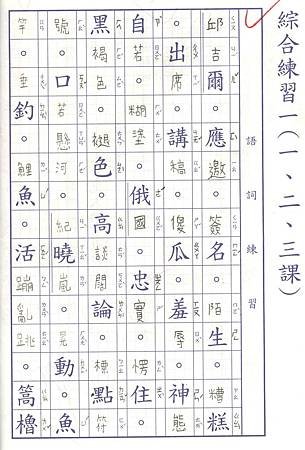 綜合練習一(一、二、三課)
語詞練習
邱吉爾。應邀。簽名。陌生。糟糕
。出席。講稿。傻瓜。羞辱。神態
自若。糊塗。俄國。忠實。愣住。
黑褐色。褪色。高談闊論。標點符
號。口若懸河。紀曉嵐。晃動。魚
竿。垂釣。鯉魚。活蹦亂跳。篙櫓